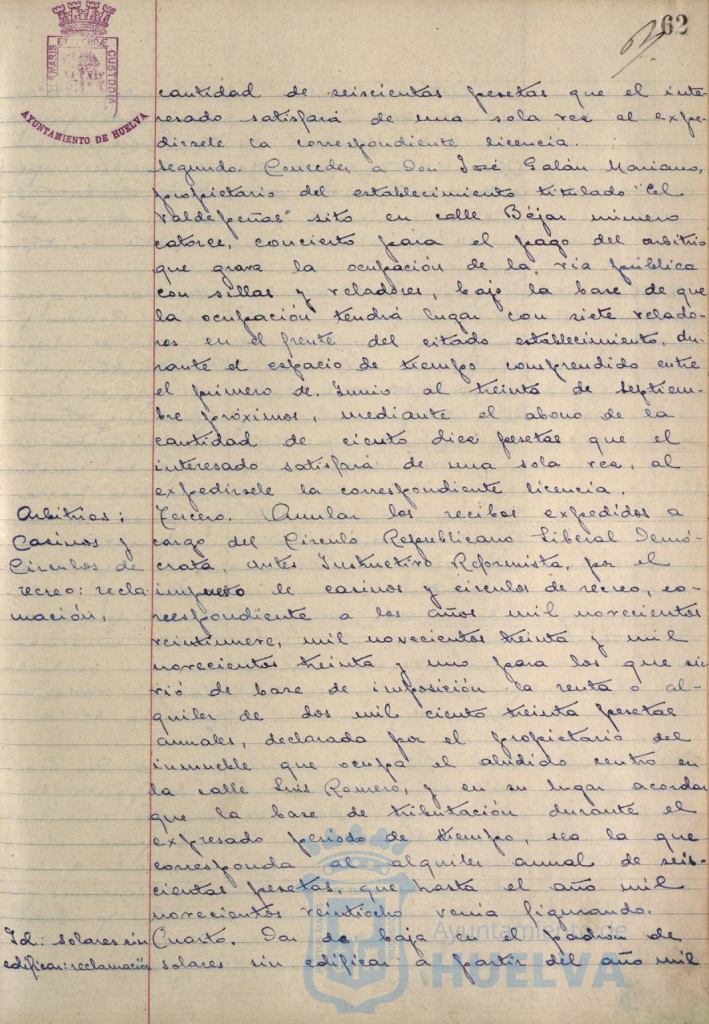 62
AYUNTAMIENTO DE HUELVA
CUSTODIA
cantidad de seiscientas pesetas que el inte-
resado satisfará de una sola vez al expe-
dirsele la correspondiente licencia.
Segundo. Conceder a Don José Galán Mariano,
propietario del establecimiento titulado "El
Valdepeñas" sito en calle Béjar número
catorce, concierto para el pago del arbitrio
que grava la ocupación de la via pública
con sillas y veladores, bajo la base de que
la ocupación tendrá lugar con siete velado-
res en el frente del citado establecimiento, du-
rante el espacio de tiempo comprendido entre
el primero de Junio al treinta de Septiem-
bre próximos, mediante el abono de la
cantidad de ciento diez pesetas que el
interesado satisfará de una sola vez, al
expedirsele la correspondiente licencia.
Arbitrios:
Casinos y
Circulos de
recreo: recla-
mación.
Tercero. Anular los recibos expedidos a
cargo del Circulo Republicano Liberal Demó-
crata, antes Instructivo Reformista, por el
impuesto de casinos y circulos de recreo, co-
rrespondiente a los años mil novecientos
veintinueve, mil novecientos treinta y mil
novecientos treinta y uno para los que sir-
vió de base de imposición la renta o al-
quiler de dos mil ciento treinta pesetas
anuales, declarada por el propietario del
inmueble que ocupa el aludido centro en
la calle Luis Romero, y en su lugar acordar
que la base de tributación durante el
expresado periodo de tiempo, sea la que
corresponda al alquiler anual de seis-
cientas pesetas, que hasta el año mil
novecientos veintiocho venia figurando.
Id.: solares sin
edificar: reclamación
Cuarto. Dar de baja en el padrón de
solares sin edificar a partir del año mil
Ayuntamiento de
HUELVA